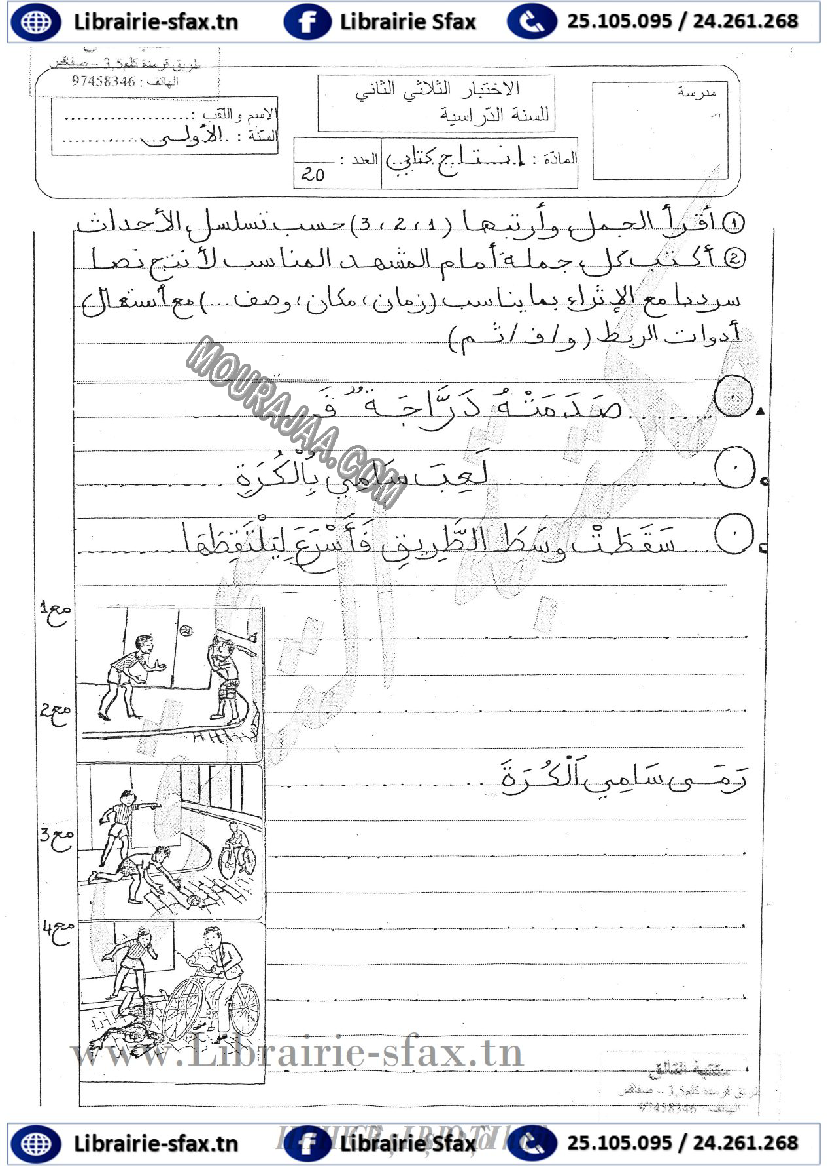 Librairie-sfax.tn Librairie Sfax 25.105.095 / 24.261.268
طريق قرمدة كلم 3,5 – صفاقس
الهاتف : 97458346
مدرسة
الاختبار الثلاثي الثاني
للسنة الدراسية
المادة : انتاج كتابي
العدد : 20
الاسم واللقب : ....................
السنة : الأولى
① أقرأ الجمل وأرتبها (1، 2، 3) حسب تسلسل الأحداث
② أكتب كل جملة أمام المشهد المناسب لأنتج نصا
سرديا مع الإثراء بما يناسب (زمان، مكان، وصف ...) مع استعمال
أدوات الربط (و/ف/ثم)
صَدَمَتْهُ دَرَّاجَةٌ فَ
لَعِبَ سَامِي بِالْكُرَةِ
سَقَطَتْ وسَطَ الطَّرِيقِ فَأَسْرَعَ لِيَلْتَقِطَهَا
MOURAJAA.COM
مع1
مع2
رَمَى سَامِي الْكُرَةَ
مع3
مع4
www.Librairie-sfax.tn
طريق قرمدة كلم 3,5 – صفاقس
الهاتف : 97458346
Librairie-sfax.tn Librairie Sfax 25.105.095 / 24.261.268